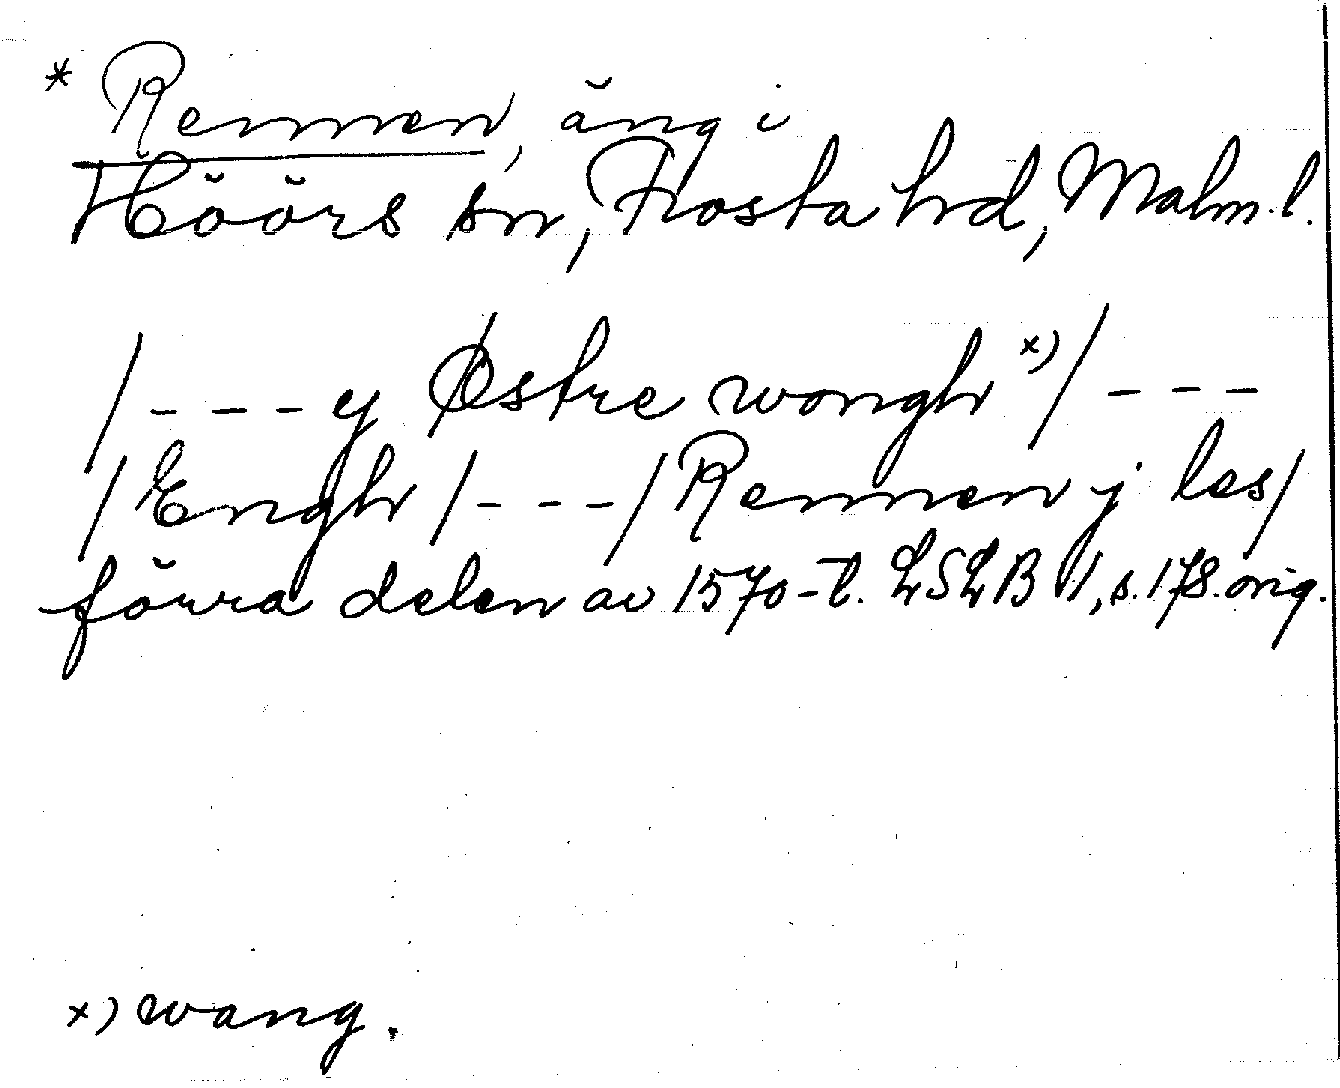 * Rennen, äng i
Höörs sn, Frosta hrd, Malm. l.
/---y Østre wongh x)/---
/Engh/---/Rennen j les/
förra delen av 1570-t. LSLB V, s. 178. orig.
x) wang.